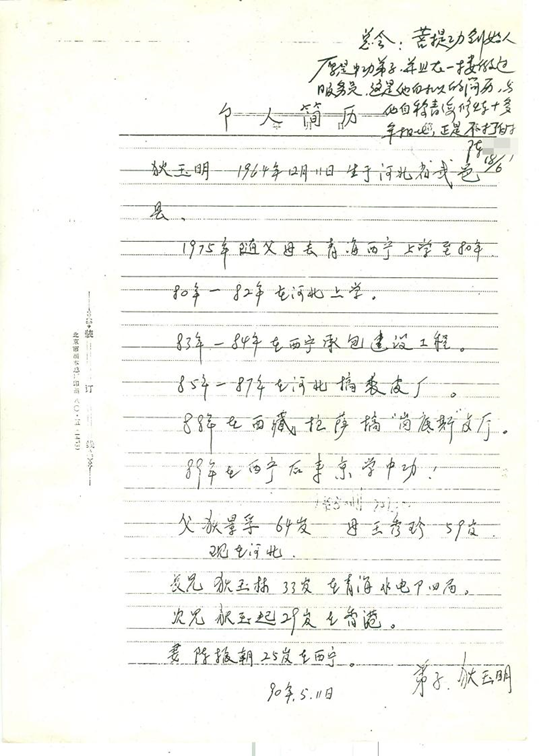 总会：菩提功创始人
原是中功弟子，并且在一楼做过
服务员，这是他自己的简历，与
他自称青海修炼十多
年
陈
个人简历
狄玉明 1964年12月11日生于河北省武邑
县。
1975年随父母去青海西宁上学至80年
80年—82年在河北上学。
83年—84年在西宁承包建设工程。
85年—87年在河北搞裘皮厂。
88年在西藏拉萨搞“岗底斯”文厅。
89年在西宁后来京学中功！
父狄景 64岁 母王秀珍 59岁
现在河北.
长兄狄玉栋33岁在青海水电四局。
次兄狄玉起29岁在香港。
妻陈振朝25岁在西宁。
弟子.狄玉明
90年.5.11日
装
订
线